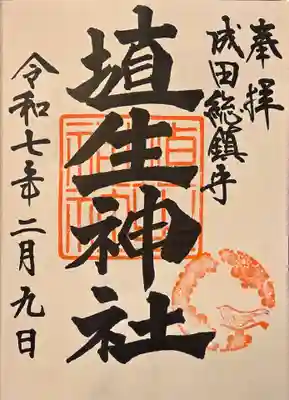 奉拝
成田総鎮守
埴生神社
令和七年二月九日